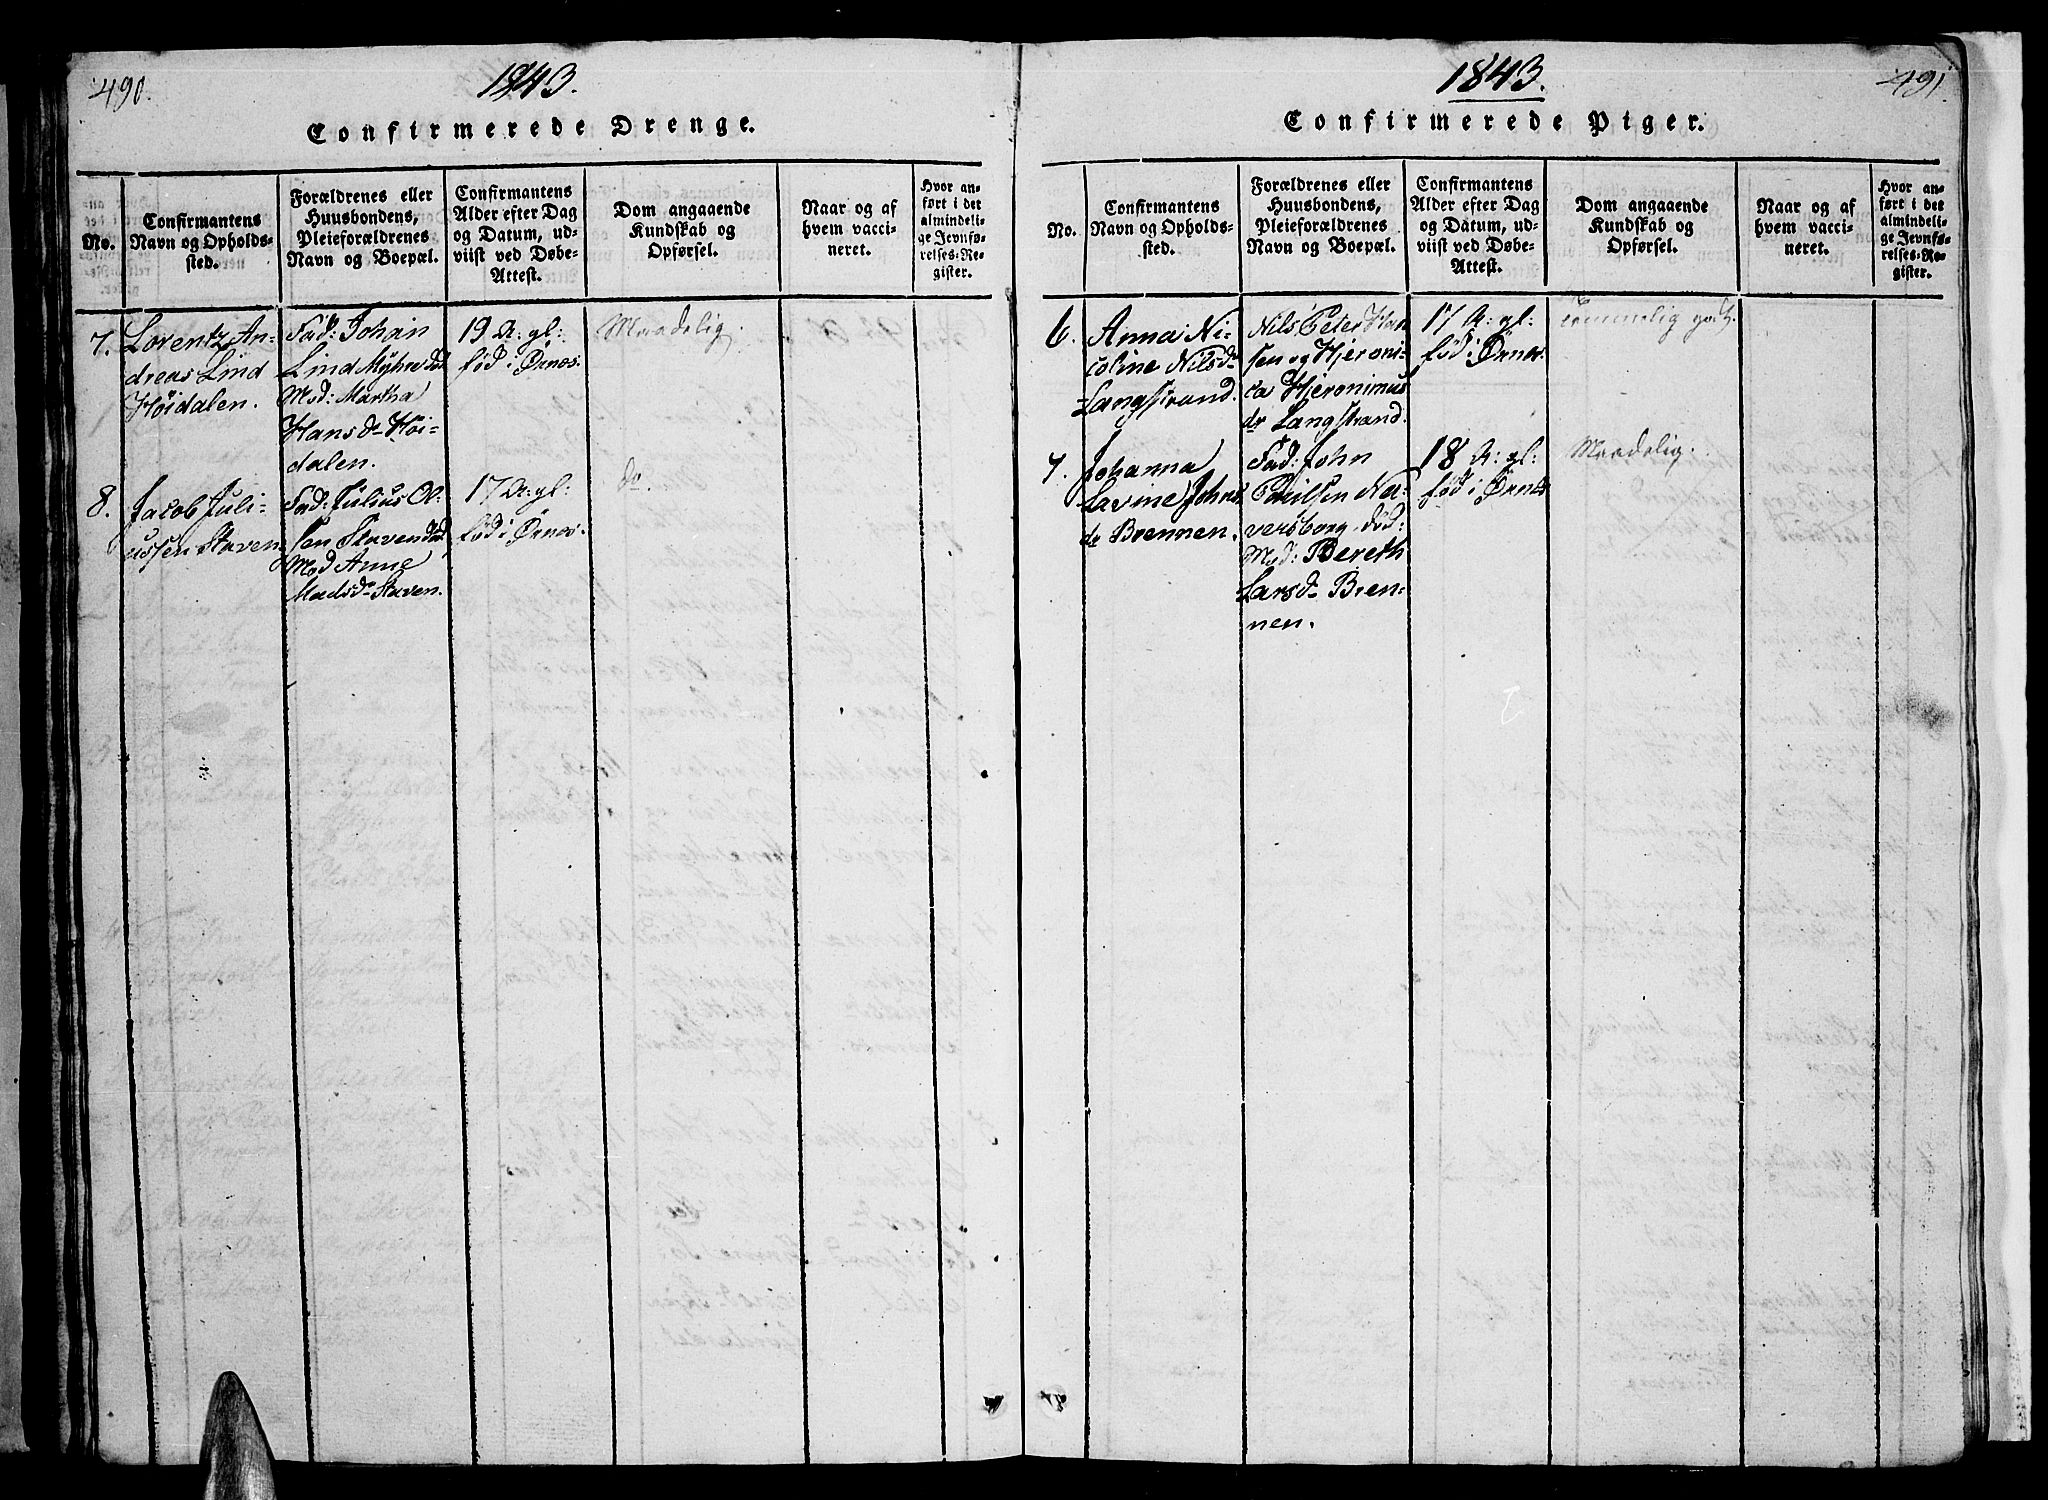 490.
1843.
Confirmerede Drenge.
No.
Confirmantens
Navn og Opholds-
sted.
Forældrenes eller
Huusbondens,
Pleieforældrenes
Navn og Boepæl.
Confirmantens
Alder efter Dag
og Datum, ud-
viist ved Døbe-
Attest.
Dom angaaende
Kundskab og
Opførsel.
Naar og af
hvem vacci-
neret.
Hvor an-
ført i det
almindeli-
ge Jevnfø-
relses-Re-
gister.
7.
Lorentz An-
dreas Lind
Höidalen.
Fad: Johan
Lind Myhre
Mod: Martha
Hansdr Höi-
dalen.
19 A: gl:
fød i Ørnes.
Maadelig.
8.
Jacob Juli-
ussen Staven
Fad: Julius Ol-
sen Staven
Mod Anne
Madsdr Staven.
17 A: gl:
fød i Ørnes.
do.
1843.
491.
Confirmerede Piger.
No.
Confirmantens
Navn og Opholds-
sted.
Forældrenes eller
Huusbondens,
Pleieforældrenes
Navn og Boepæl.
Confirmantens
Alder efter Dag
og Datum, ud-
viist ved Døbe-
Attest.
Dom angaaende
Kundskab og
Opførsel.
Naar og af
hvem vacci-
neret.
Hvor an-
ført i det
almindeli-
ge Jevnfø-
relses-Re-
gister.
6.
Anna Ni-
coline Nilsdr
Langstrand.
Nils Peter Han
sen og Hjeroni-
ca Hjeronimus
dr Langstrand.
17 A: gl:
fød i Ørnes.
Temmelig godt.
7.
Johanna
Lavine Johns
dr Brennen.
Fad: John
Paulsen Na-
versborg død:
Mod: Bereth
Larsdr Bren-
nen.
18 A: gl:
fød i Ørnes
Maadelig.